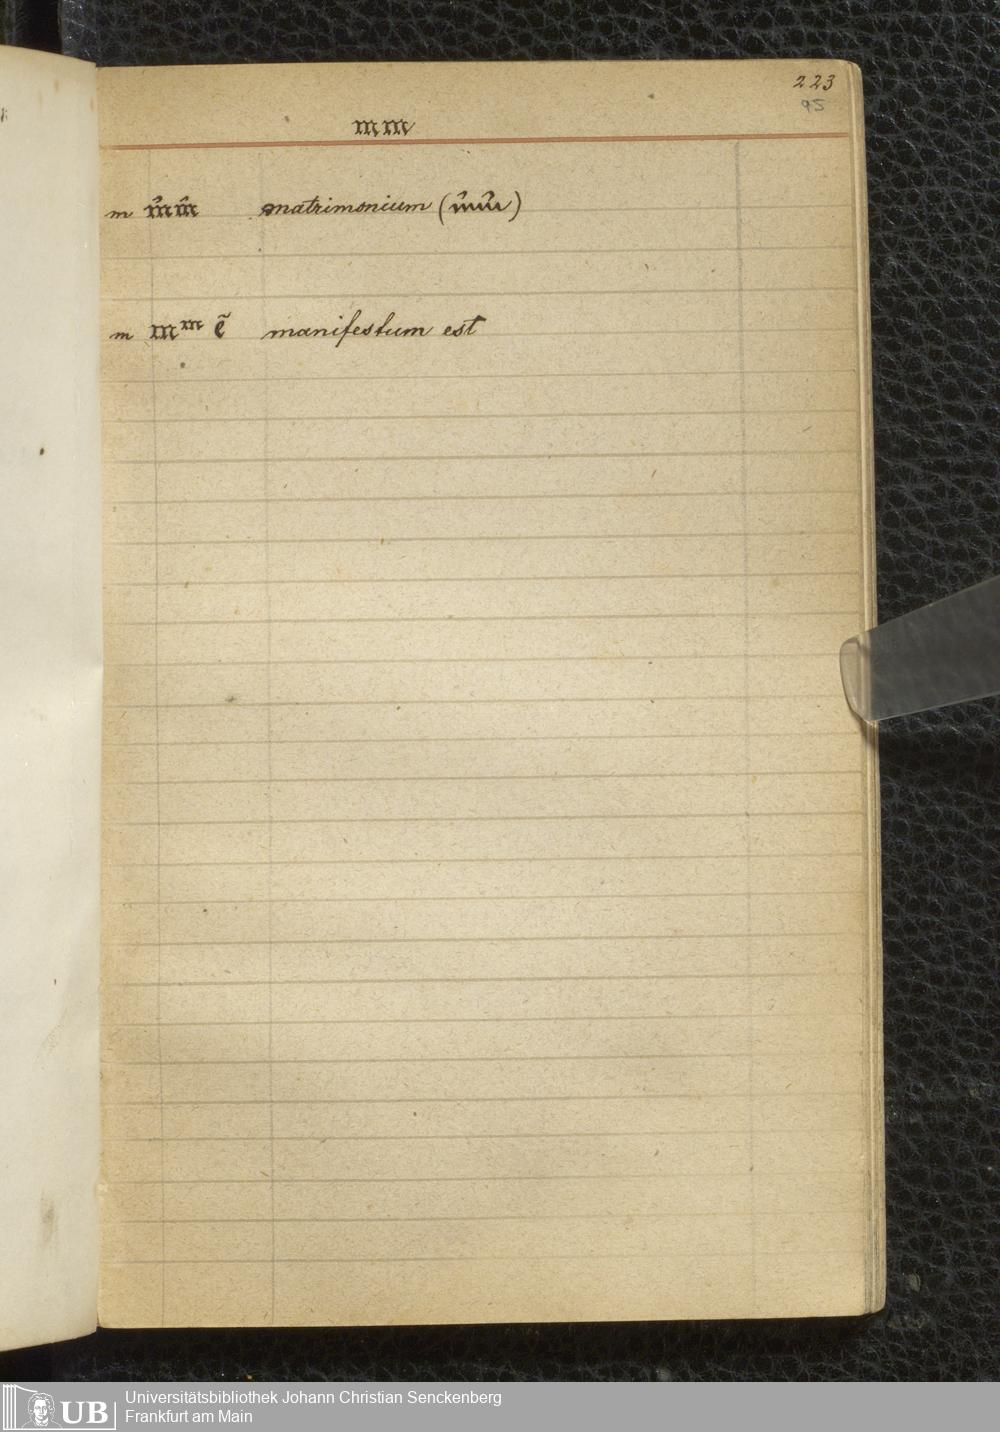 223
95
mm
m m̂m̂ matrimonium (m̂m̂)
m mᵐ ẽ manifestum est
UB
Universitätsbibliothek Johann Christian Senckenberg
Frankfurt am Main